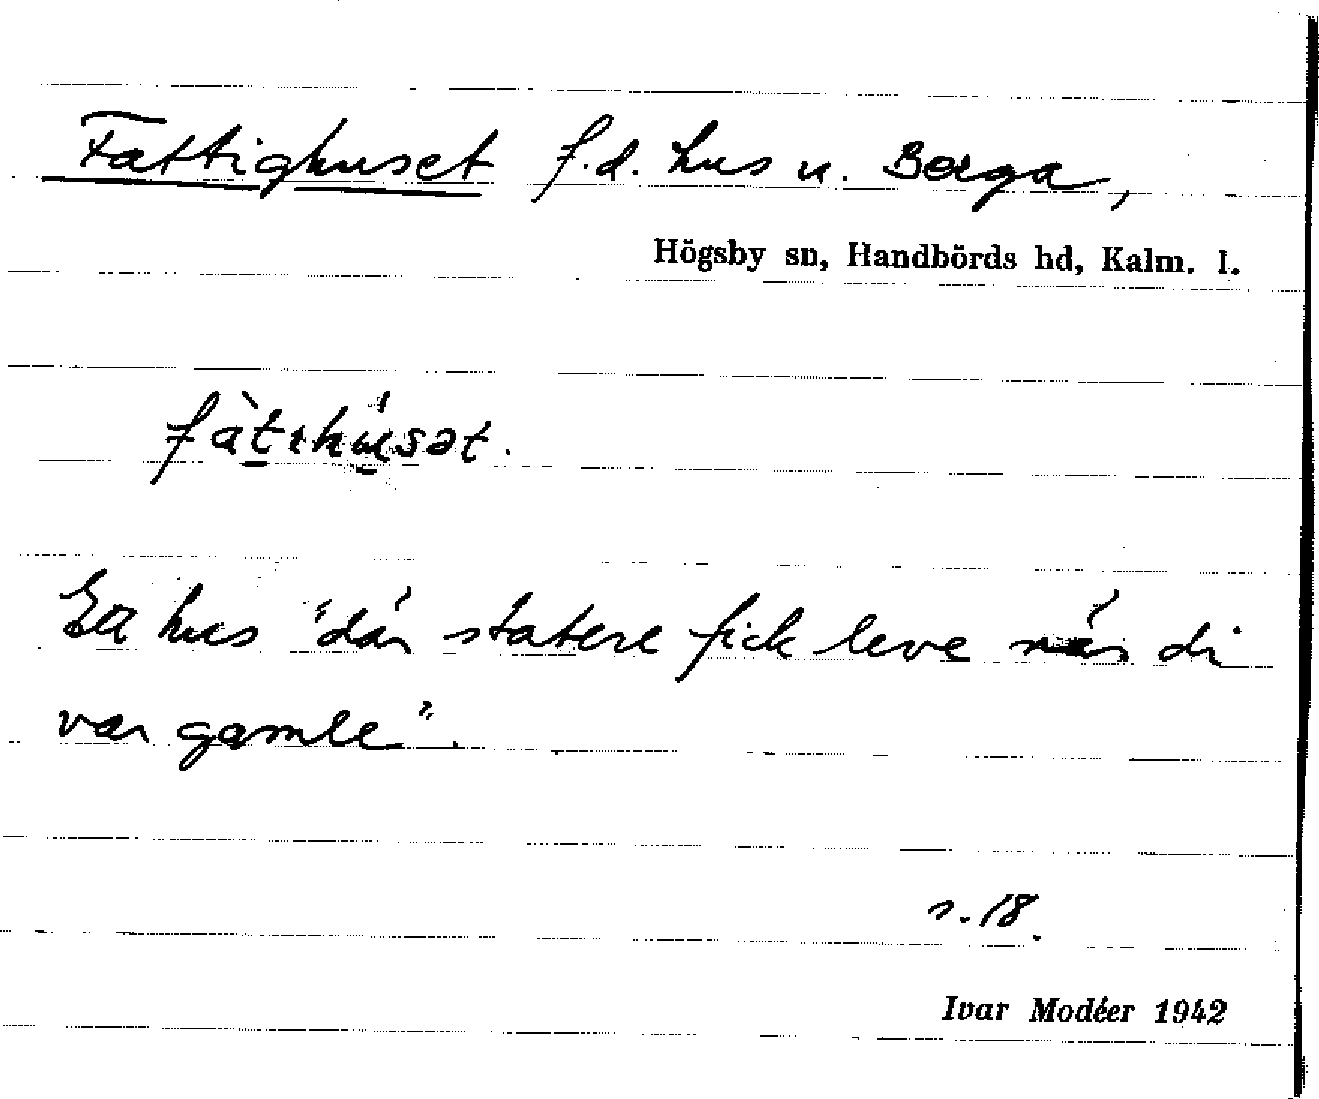 Fattighuset f.d. hus u. Berga,
Högsby sn, Handbörds hd, Kalm. l.
fàtıhúsət.
Ett hus "där statere fick leve när di
var gamle".
s. 18.
Ivar Modéer 1942